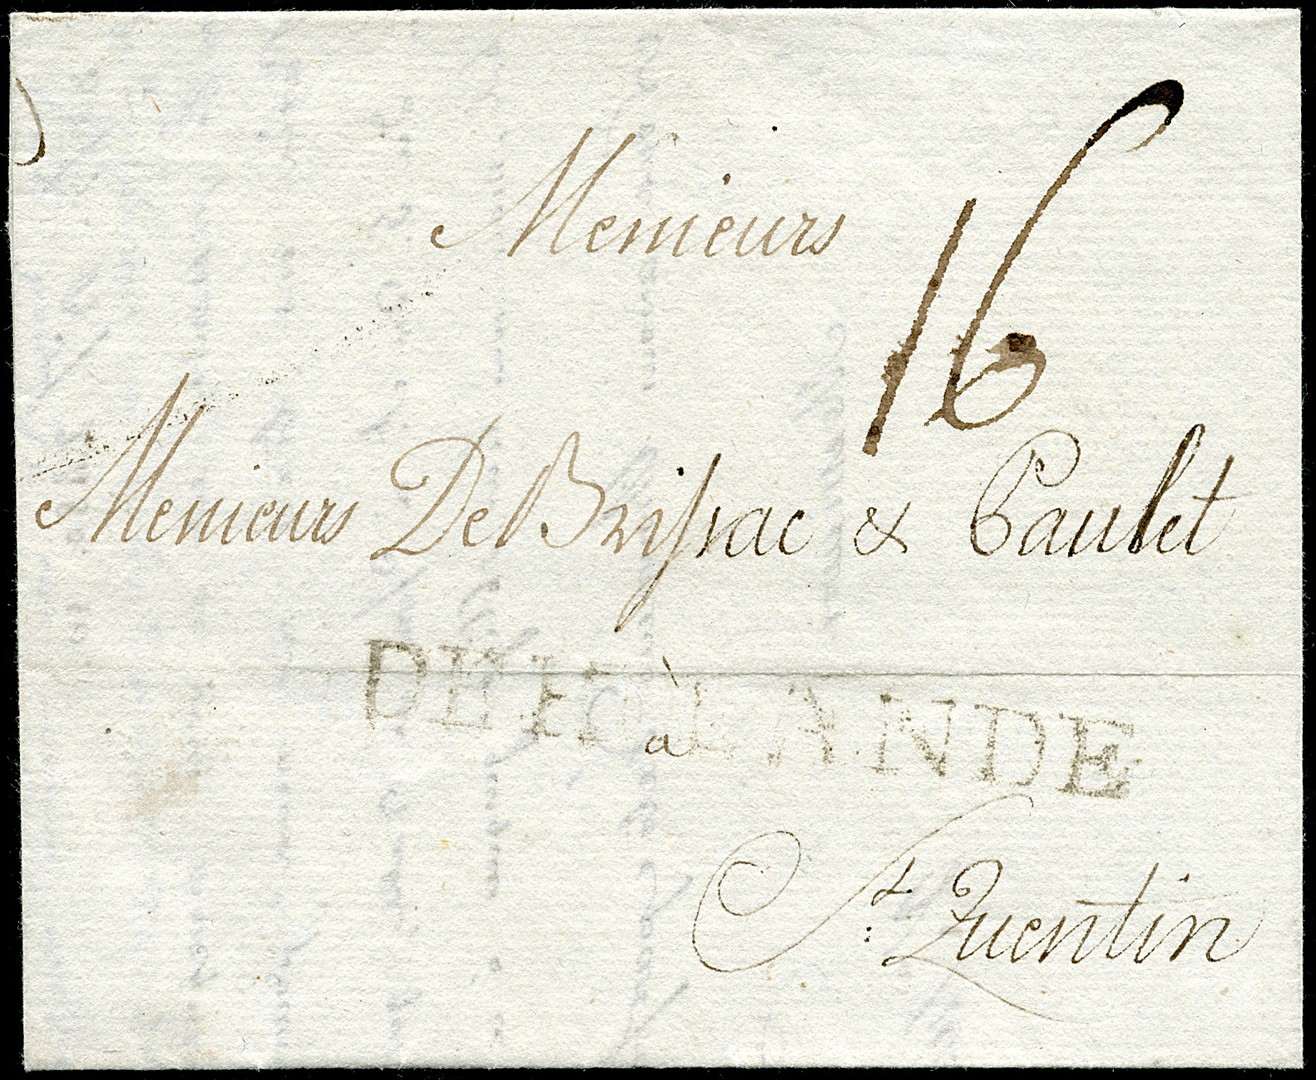 Messieurs
16
Messieurs De Brissac & Paulet
DEHOLANDE
à
St. Quentin